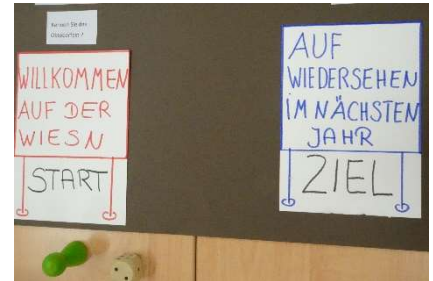 WILLKOMMEN
AUF DER
WIESN
START
AUF
WIEDERSEHEN
IM NÄCHSTEN
JAHR
ZIEL